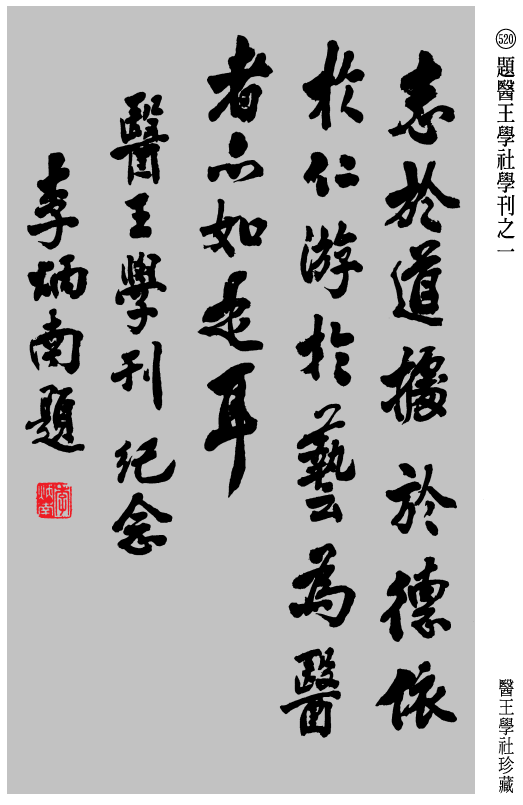 520 題醫王學社學刊之一
志於道據於德依
於仁游於藝為醫
者亦如是耳
醫王學刊紀念
李炳南題
李炳南
醫王學社珍藏